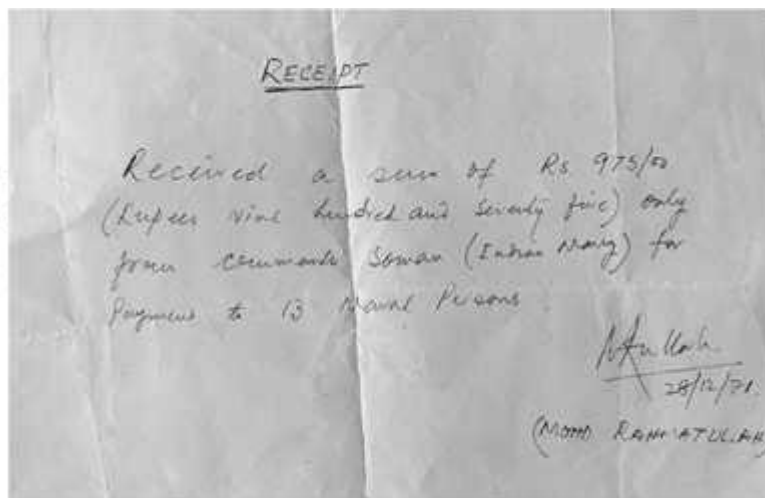 RECEIPT
Received a sum of Rs 975/00
(Rupees nine hundred and seventy five) only
from commander Soman (Indian Navy) for
Payment to 13 Naval Persons.
28/12/71.
(MOHD RAHMATULLAH)